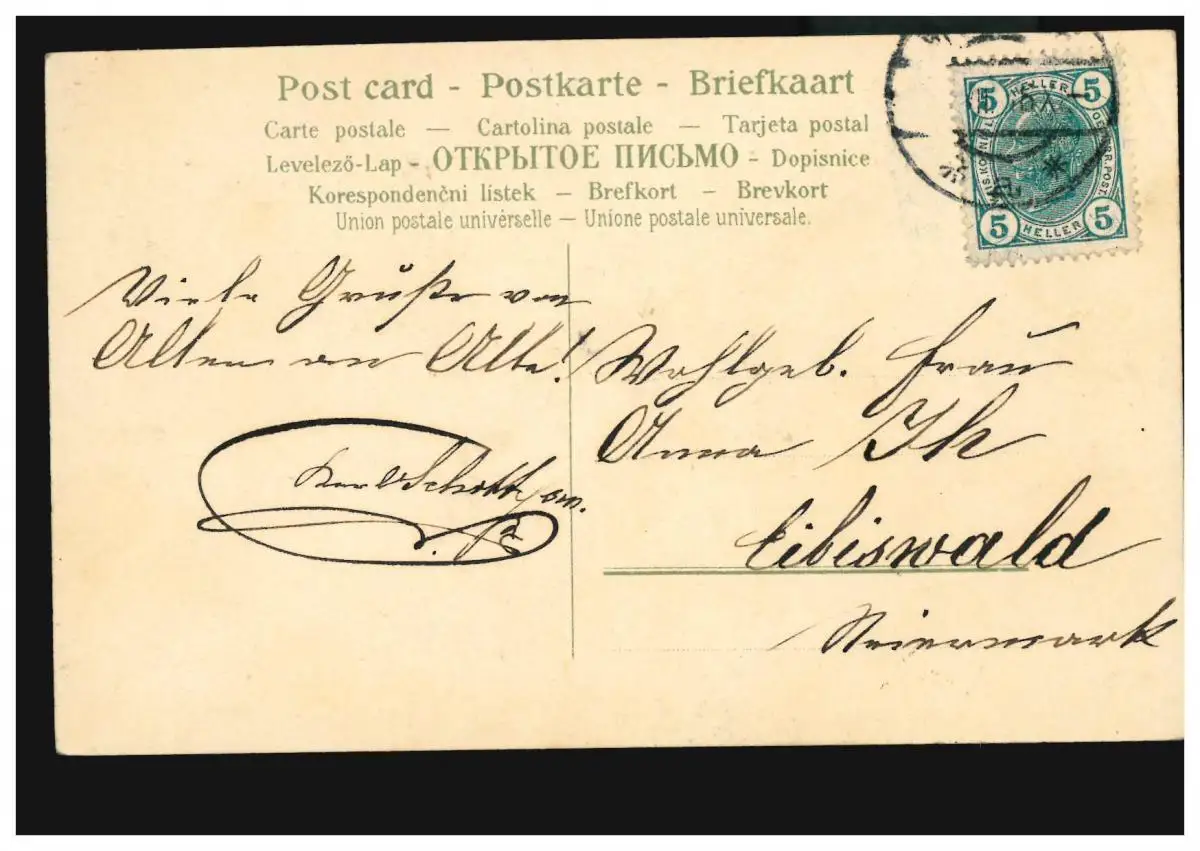 Post card - Postkarte - Briefkaart
Carte postale — Cartolina postale — Tarjeta postal
Levelező-Lap - ОТКРЫТОЕ ПИСЬМО - Dopisnice
Korespondenčni listek — Brefkort — Brevkort
Union postale universelle — Unione postale universale.
5 HELLER 5
5 HELLER 5
Viele Grüße von
Alten an Alte!
Karl Schott
Wohlgeb. Frau
Anna Ih
Eibiswald
Steiermark